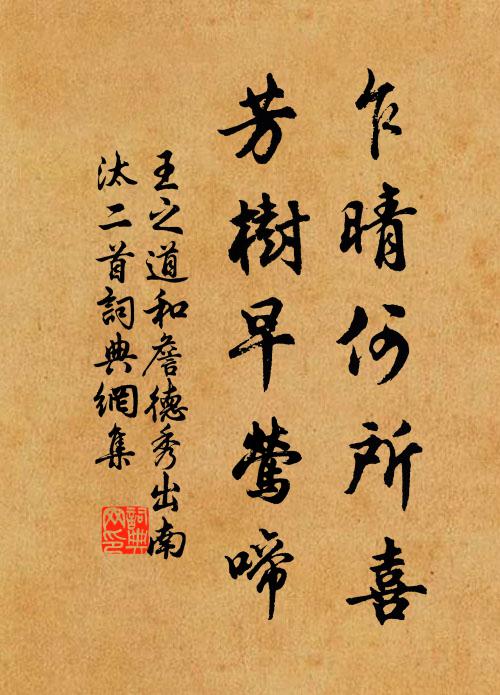 乍晴何所喜
芳樹早鶯啼
王之道和詹德秀出南
汰二首詞典網集
詞典
网印